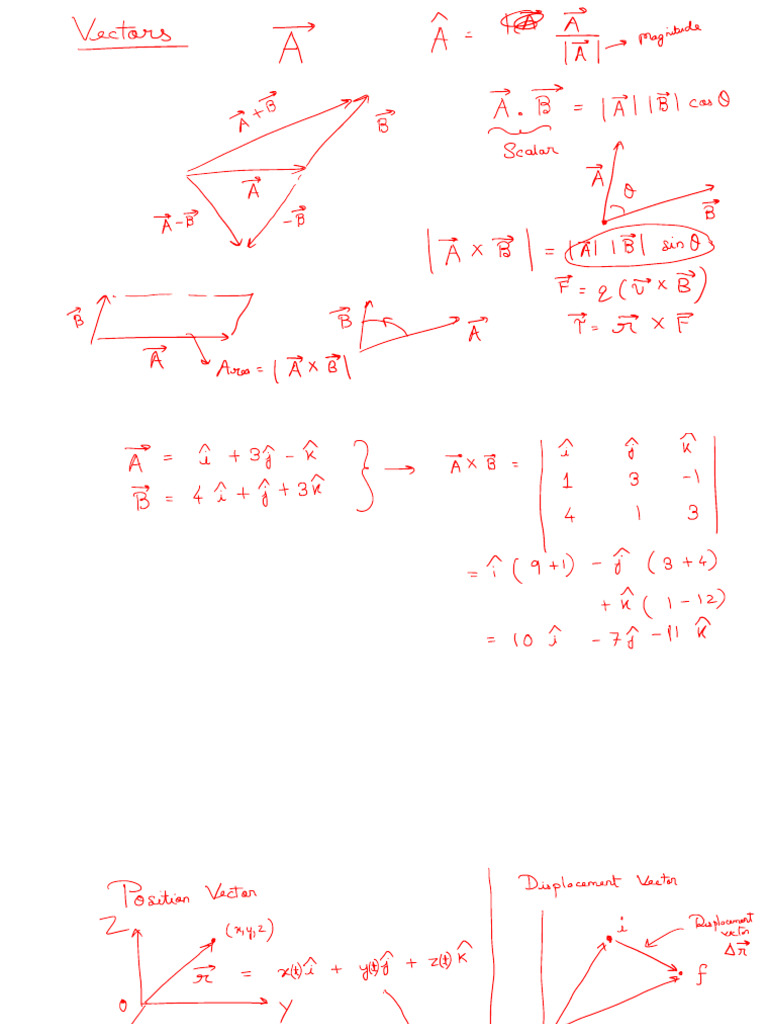 Vectors
A⃗
Â = A⃗ / |A⃗| → Magnitude
A⃗ . B⃗ = |A⃗| |B⃗| cos θ
Scalar
A⃗ + B⃗
B⃗
A⃗
A⃗ - B⃗
-B⃗
A⃗
θ
B⃗
|A⃗ × B⃗| = |A⃗| |B⃗| sin θ
F⃗ = q (v⃗ × B⃗)
τ⃗ = r⃗ × F⃗
B⃗
A⃗
Area = |A⃗ × B⃗|
B⃗
A⃗
A⃗ = î + 3ĵ - k̂
B⃗ = 4î + ĵ + 3k̂
} → A⃗ × B⃗ = | î ĵ k̂ |
1 3 -1
4 1 3
= î (9+1) - ĵ (3+4)
+ k̂ (1-12)
= 10 î - 7ĵ - 11 k̂
Position Vector
Z
(x,y,z)
r⃗ = x(t)î + y(t)ĵ + z(t)k̂
O
Y
Displacement Vector
i
Displacement
vector
Δr⃗
f